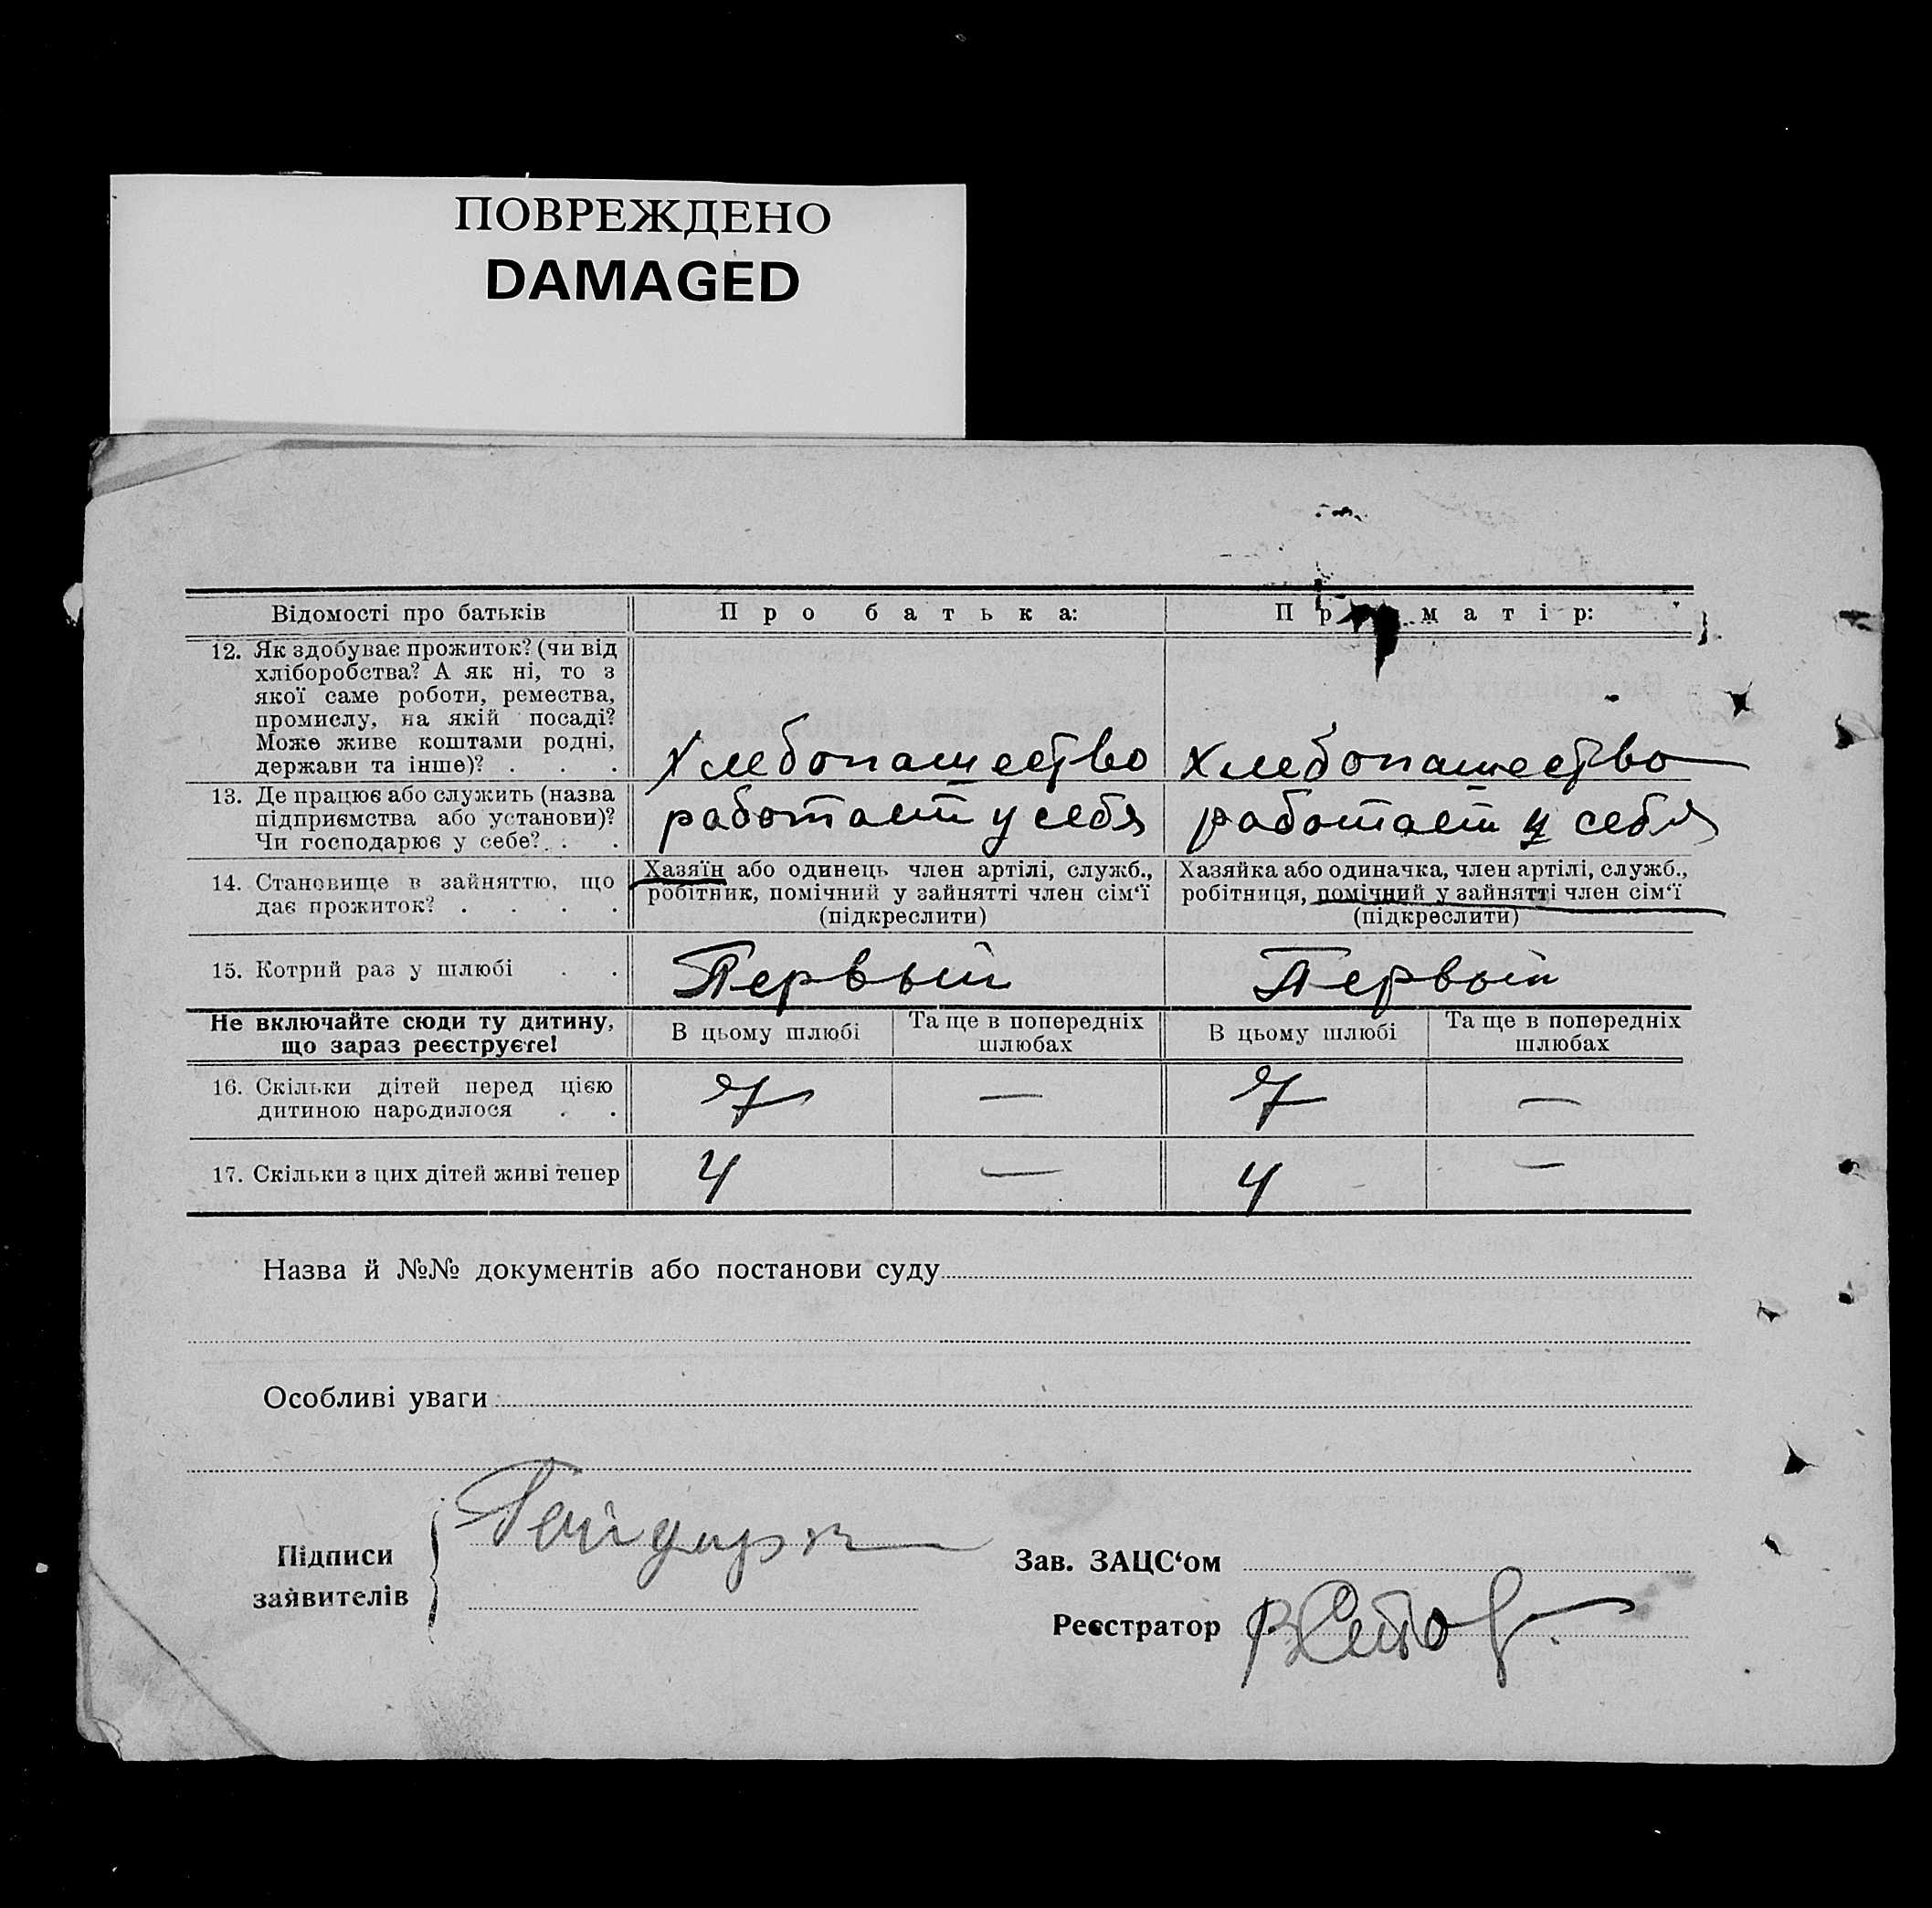 ПОВРЕЖДЕНО
DAMAGED
Відомості про батьків
Про батька:
Пр матір:
12. Як здобуває прожиток? (чи від
хліборобства? А як ні, то з
якої саме роботи, ремества,
промислу, на якій посаді?
Може живе коштами родні,
держави та інше)? . . .
Хлебопашество
Хлебопашество
13. Де працює або служить (назва
підприємства або установи)?
Чи господарює у себе? . .
работает у себя
работает у себя
14. Становище в зайняттю, що
дає прожиток? . . . .
Хазяїн або одинець член артілі, служб.,
робітник, помічний у зайнятті член сім‘ї
(підкреслити)
Хазяйка або одиначка, член артілі, служб.,
робітниця, помічний у зайнятті член сім‘ї
(підкреслити)
15. Котрий раз у шлюбі . .
Первый
Первый
Не включайте сюди ту дитину,
що зараз реєструєте!
В цьому шлюбі
Та ще в попередніх
шлюбах
В цьому шлюбі
Та ще в попередніх
шлюбах
16. Скільки дітей перед цією
дитиною народилося . .
7
—
7
—
17. Скільки з цих дітей живі тепер
4
—
4
—
Назва й №№ документів або постанови суду
Особливі уваги
Підписи
заявителів
Зав. ЗАЦС‘ом
Реєстратор